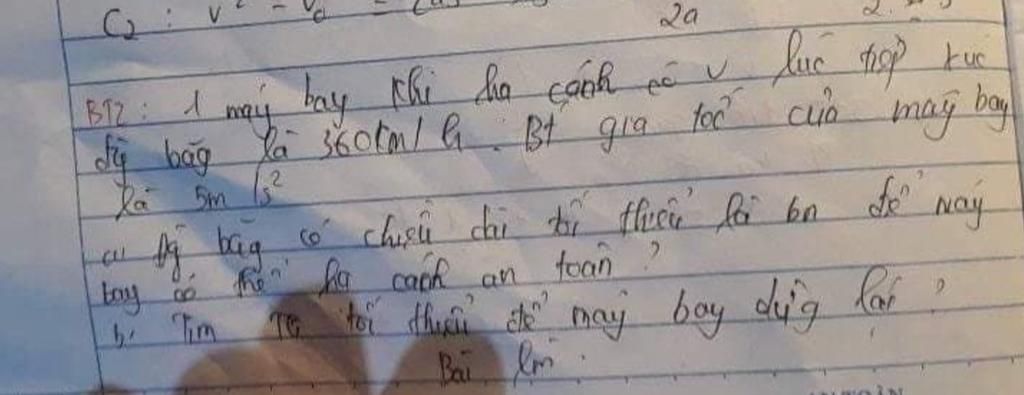 C2 : v² - v₀ =
2a
BT2: 1 máy bay khi hạ cánh có v lúc tiếp xúc
đg băg là 360km/h. Bt gia tốc của máy bay
là 5m/s²
a, Đg băg có chiều dài tối thiểu là bn để máy
bay có thể hạ cánh an toàn?
b, Tìm TG tối thiểu để máy bay dừg lại?
Bài làm